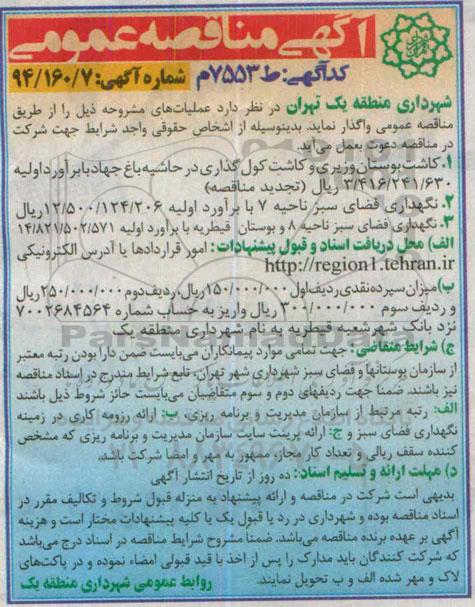 آگهی مناقصه عمومی
کد آگهی: ط ۷۵۵۳م شماره آگهی: ۹۴/۱۶۰/۷
شهرداری منطقه یک تهران در نظر دارد عملیات‌های مشروحه ذیل را از طریق
مناقصه عمومی واگذار نماید. بدینوسیله از اشخاص حقوقی واجد شرایط جهت شرکت
در مناقصه دعوت بعمل می‌آید.
۱. کاشت بوستان وزیری و کاشت کول گذاری در حاشیه باغ جهاد با برآورد اولیه
۳/۴۱۶/۲۴۱/۶۳۰ ریال (تجدید مناقصه)
۲. نگهداری فضای سبز ناحیه ۷ با برآورد اولیه ۱۲/۵۰۰/۱۲۴/۲۰۶ ریال
۳. نگهداری فضای سبز ناحیه ۸ و بوستان قیطریه با برآورد اولیه ۱۴/۸۲۱/۵۰۲/۵۷۱
الف) محل دریافت اسناد و قبول پیشنهادات: امور قراردادها یا آدرس الکترونیکی
http://region1.tehran.ir
ب) میزان سپرده نقدی ردیف اول ۱۵۰/۰۰۰/۰۰۰ ریال، ردیف دوم ۲۵۰/۰۰۰/۰۰۰ ریال
و ردیف سوم ۳۰۰/۰۰۰/۰۰۰ ریال واریز به حساب شماره ۷۰۰۲۶۸۴۵۶۴
نزد بانک شهر شعبه قیطریه به نام شهرداری منطقه یک
ج) شرایط متقاضی: جهت تمامی موارد پیمانکاران می‌بایست ضمن دارا بودن رتبه معتبر
از سازمان بوستانها و فضای سبز شهرداری شهر تهران، تابع شرایط مندرج در اسناد مناقصه
نیز باشند. ضمنا جهت ردیفهای دوم و سوم متقاضیان می‌بایست حائز شروط ذیل باشند
الف: رتبه مرتبط از سازمان مدیریت و برنامه ریزی، ب: ارائه رزومه کاری در زمینه
نگهداری فضای سبز و ج: ارائه پرینت سایت سازمان مدیریت و برنامه ریزی که مشخص
کننده سقف ریالی و تعداد کار مجاز، ممهور به مهر و امضا شرکت باشد.
د) مهلت ارائه و تسلیم اسناد: ده روز از تاریخ انتشار آگهی
بدیهی است شرکت در مناقصه و ارائه پیشنهاد به منزله قبول شروط و تکالیف مقرر در
اسناد مناقصه بوده و شهرداری در رد یا قبول یک یا کلیه پیشنهادات مختار است و هزینه
آگهی بر عهده برنده مناقصه می‌باشد. ضمنا مشروح شرایط مناقصه در اسناد درج می‌باشد
که شرکت کنندگان باید مدارک را پس از اخذ با قید قبولی امضاء نموده و در پاکت‌های
لاک و مهر شده الف و ب تحویل نمایند.
روابط عمومی شهرداری منطقه یک